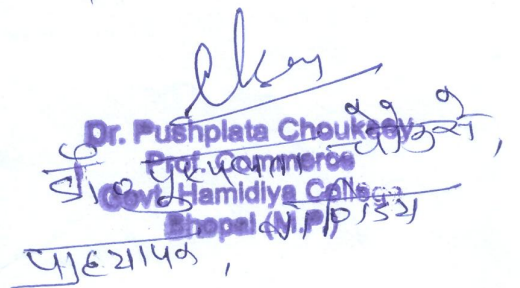 Dr. Pushplata Chouksey
Prof. Commerce
Govt. Hamidiya College
Bhopal (M.P.)
डॉ. पुष्पलता चौकसे,
प्राध्यापक, वाणिज्य